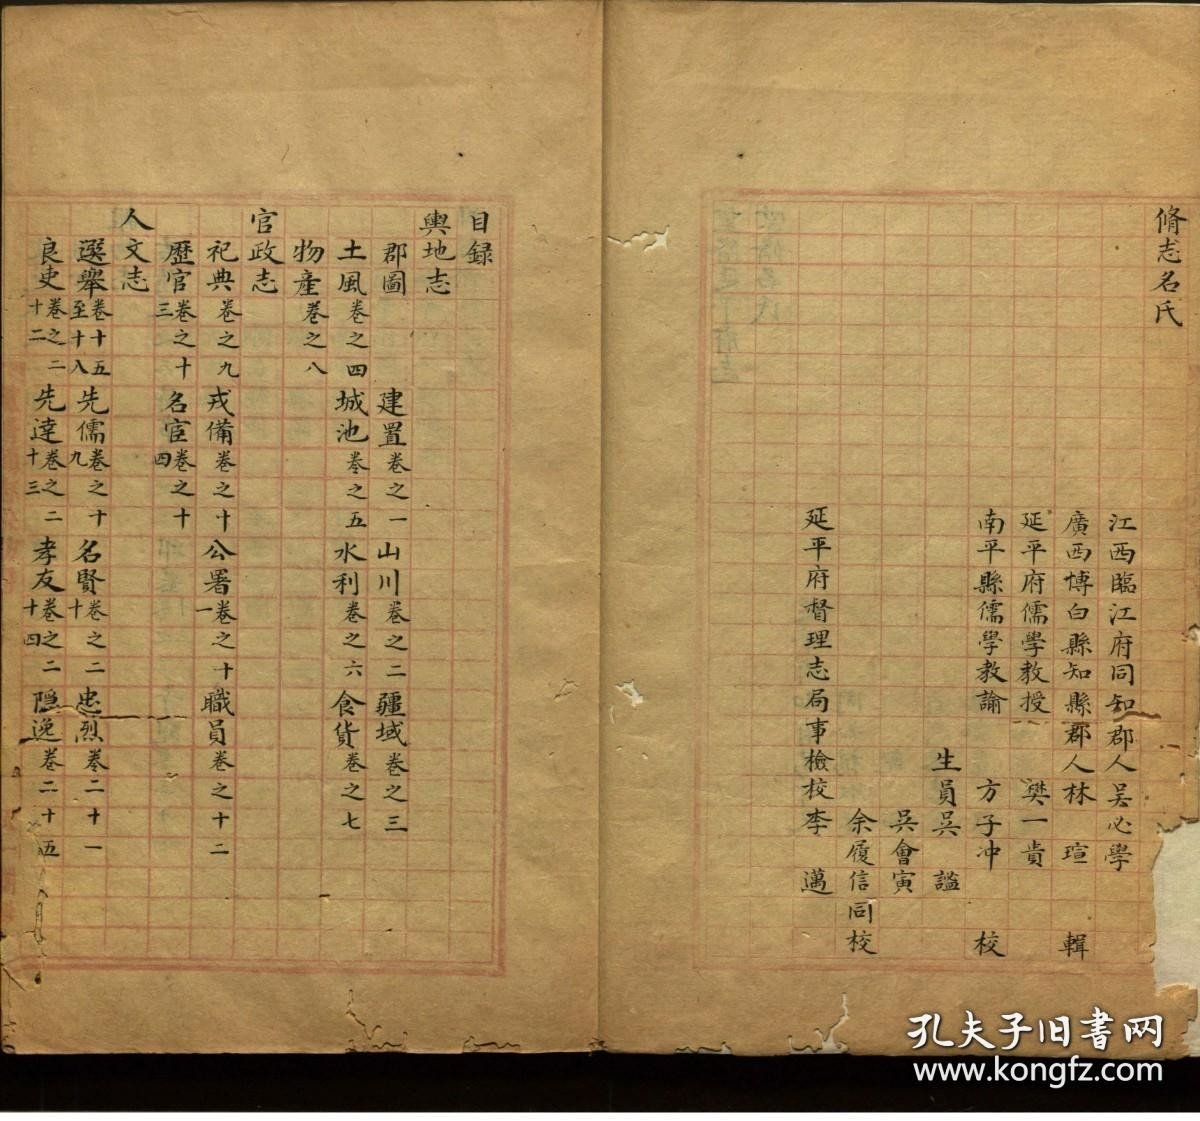 脩志名氏
江西臨江府同知郡人吴必學
廣西博白縣知縣郡人林 瑄 輯
延平府儒學教授 樊一貴
南平縣儒學教諭 方子冲 校
生員吴 謐
吴會寅
余履信同校
延平府督理志局事檢校李 邁
目録
輿地志
郡圖 建置卷之一 山川卷之二 疆域卷之三
土風卷之四 城池卷之五 水利卷之六 食貨卷之七
物產卷之八
官政志
祀典卷之九 戎備卷之十 公署卷之十一 職員卷之十二
歷官卷之十三 名宦卷之十四
人文志
選舉卷十五至十八 先儒卷之十九 名賢卷之二十 忠烈卷二十一
良吏卷之二十二 先達卷之二十三 孝友卷之二十四 隱逸卷二十五
孔夫子旧书网
www.kongfz.com